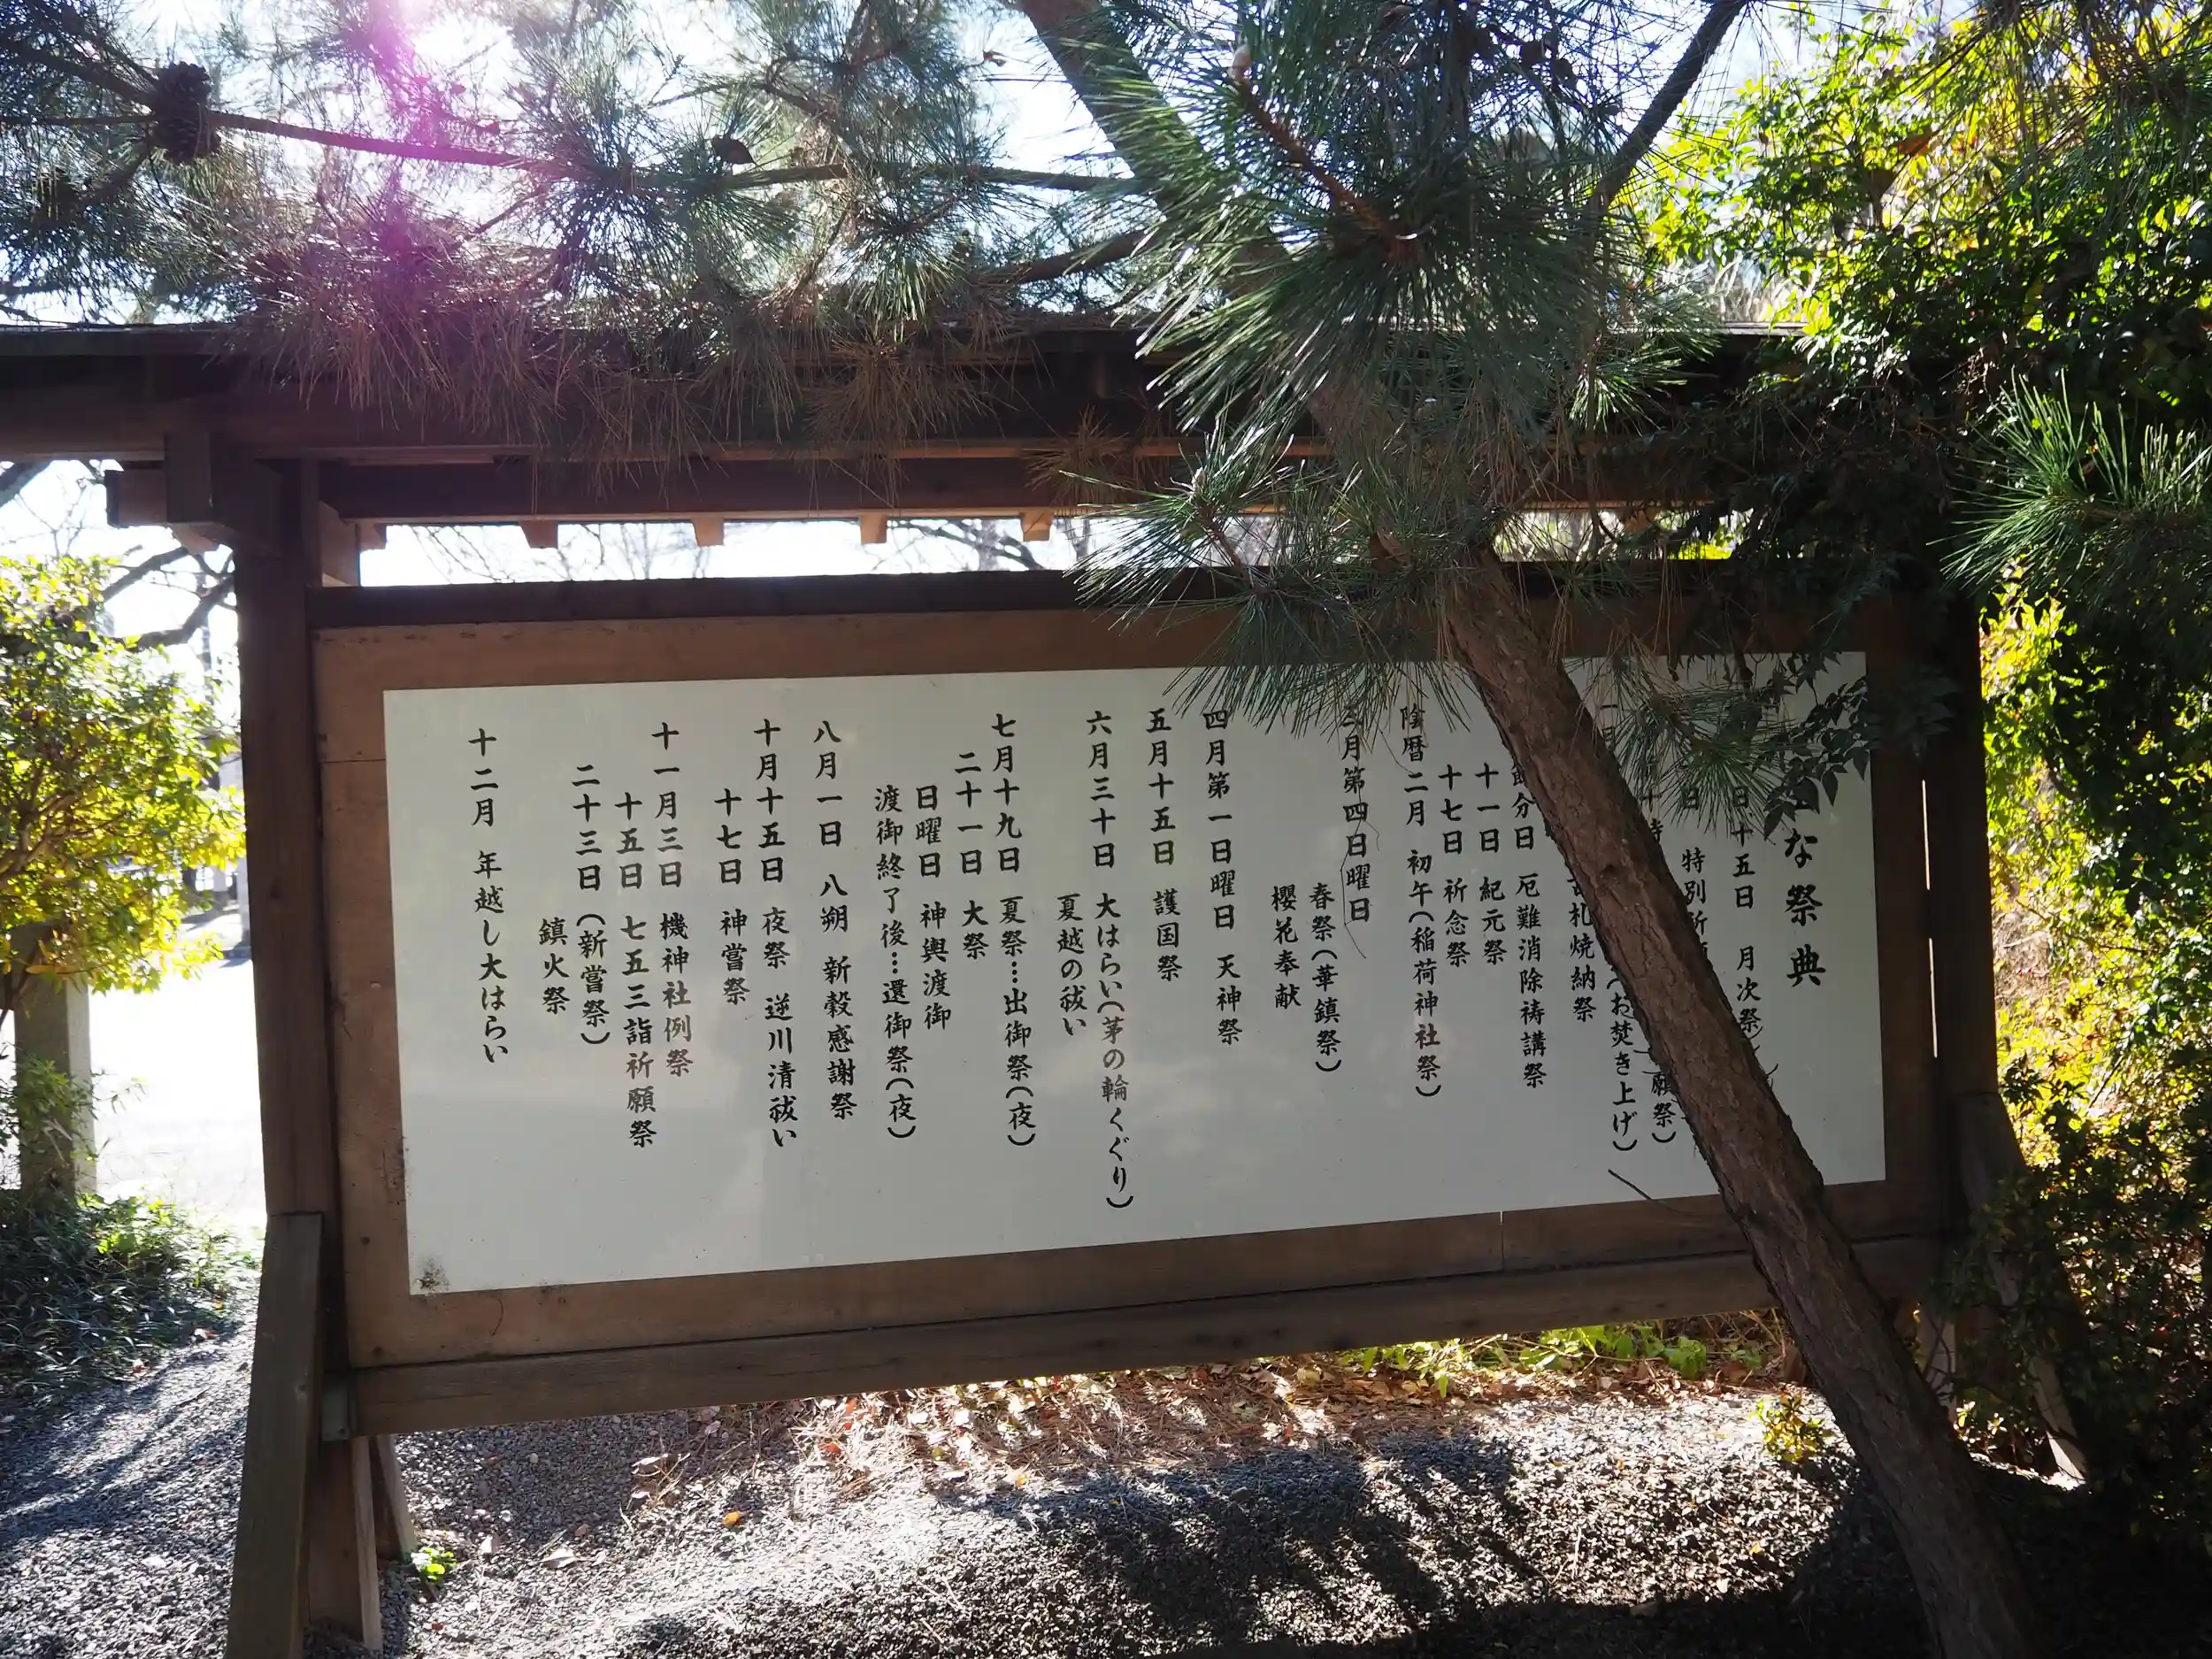 な祭典
十五日 月次祭
日 特別祈
願祭)
(お焚き上げ)
札焼納祭
節分日 厄難消除祷講祭
十一日 紀元祭
十七日 祈念祭
陰暦二月 初午(稲荷神社祭)
三月第四日曜日
春祭(華鎮祭)
櫻花奉献
四月第一日曜日 天神祭
五月十五日 護国祭
六月三十日 大はらい(茅の輪くぐり)
夏越の祓い
七月十九日 夏祭…出御祭(夜)
二十一日 大祭
日曜日 神輿渡御
渡御終了後…還御祭(夜)
八月一日 八朔 新穀感謝祭
十月十五日 夜祭 逆川清祓い
十七日 神嘗祭
十一月三日 機神社例祭
十五日 七五三詣祈願祭
二十三日(新嘗祭)
鎮火祭
十二月 年越し大はらい